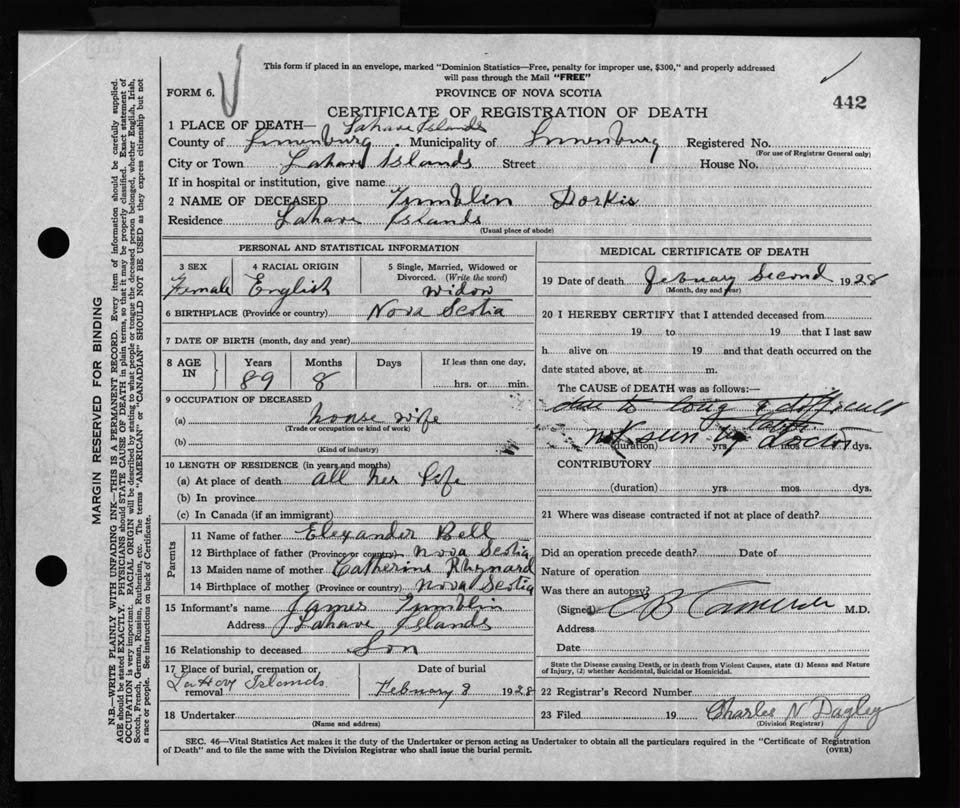 This form if placed in an envelope, marked "Dominion Statistics—Free, penalty for improper use, $300," and properly addressed
will pass through the Mail "FREE"
FORM 6.
PROVINCE OF NOVA SCOTIA
442
CERTIFICATE OF REGISTRATION OF DEATH
1 PLACE OF DEATH— Lahave Islands
County of Lunenburg. Municipality of Lunenburg Registered No.
(For use of Registrar General only)
City or Town Lahave Islands Street House No.
If in hospital or institution, give name
2 NAME OF DECEASED Dorkis
Residence Lahave Islands
(Usual place of abode)
PERSONAL AND STATISTICAL INFORMATION
3 SEX 4 RACIAL ORIGIN 5 Single, Married, Widowed or
Divorced. (Write the word)
Female English widow
6 BIRTHPLACE (Province or country) Nova Scotia
7 DATE OF BIRTH (month, day and year)
8 AGE IN Years Months Days If less than one day,
89 8 hrs. or min.
9 OCCUPATION OF DECEASED
(a) house wife
(Trade or occupation or kind of work)
(b)
(Kind of industry)
10 LENGTH OF RESIDENCE (in years and months)
(a) At place of death all her life
(b) In province
(c) In Canada (if an immigrant)
Parents
11 Name of father Elexander Bell
12 Birthplace of father (Province or country) Nova Scotia
13 Maiden name of mother Catherine Rhynard
14 Birthplace of mother (Province or country) Nova Scotia
15 Informant's name James
Address Lahave Islands
16 Relationship to deceased Son
17 Place of burial, cremation or removal Date of burial
LaHave Islands February 1928
18 Undertaker
(Name and address)
MEDICAL CERTIFICATE OF DEATH
19 Date of death Febuary Second 1928
(Month, day and year)
20 I HEREBY CERTIFY that I attended deceased from
19 to 19 that I last saw
h alive on 19 and that death occurred on the
date stated above, at m.
The CAUSE OF DEATH was as follows:—
due to long & difficult
not seen by doctor
(duration) yrs. mos. dys.
CONTRIBUTORY
(duration) yrs. mos. dys.
21 Where was disease contracted if not at place of death?
Did an operation precede death? Date of
Nature of operation
Was there an autopsy?
(Signed) Cameron M.D.
Address
Date
State the Disease causing Death, or in death from Violent Causes, state (1) Means and Nature
of Injury, (2) whether Accidental, Suicidal or Homicidal.
22 Registrar's Record Number
23 Filed 19 Charles N Dagley
(Division Registrar)
SEC. 46—Vital Statistics Act makes it the duty of the Undertaker or person acting as Undertaker to obtain all the particulars required in the "Certificate of Registration
of Death" and to file the same with the Division Registrar who shall issue the burial permit. (OVER)
MARGIN RESERVED FOR BINDING
N.B.—WRITE PLAINLY WITH UNFADING INK—THIS IS A PERMANENT RECORD. Every item of information should be carefully supplied.
AGE should be stated EXACTLY. PHYSICIANS should STATE CAUSE OF DEATH in plain terms, so that it may be properly classified. Exact statement of
OCCUPATION is very important. RACIAL ORIGIN will be described by stating to what people or tongue the deceased person belonged, whether English, Irish,
Scotch, French, German, Russian, Ruthenian, etc. The terms "AMERICAN" or "CANADIAN" SHOULD NOT BE USED as they express citizenship but not
a race or people. See instructions on back of Certificate.